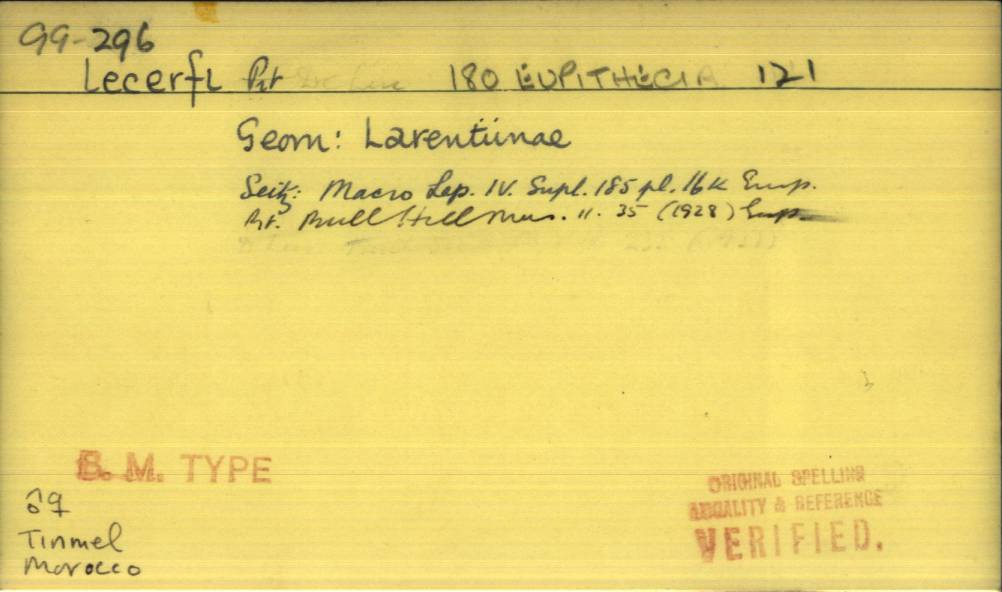 99-296
Lecerfi Prt 180 EUPITHECIA 121
Geom: Larentiinae
Seitz: Macro Lep. IV. Supl. 185 pl. 16k Eup.
Prt. Bull Hill Mus. 11. 35 (1928) Eup.
B. M. TYPE
♂♀
Tinmel
Morocco
ORIGINAL SPELLING
& REFERENCE
VERIFIED.